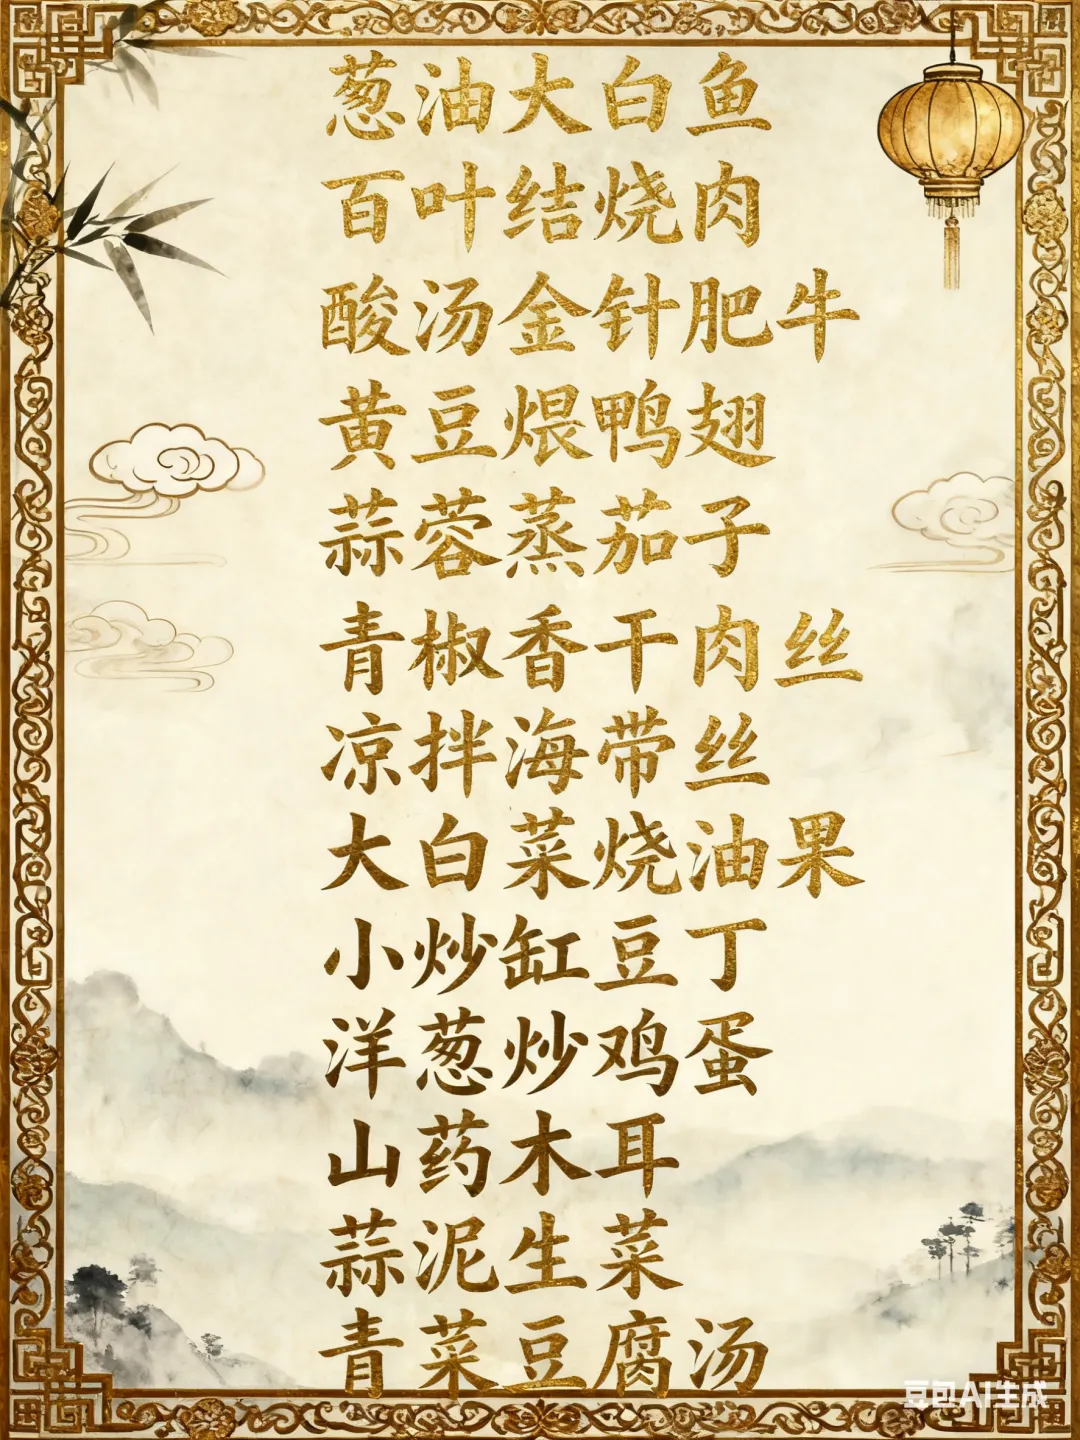 葱油大白鱼
百叶结烧肉
酸汤金针肥牛
黄豆煨鸭翅
蒜蓉蒸茄子
青椒香干肉丝
凉拌海带丝
大白菜烧油果
小炒缸豆丁
洋葱炒鸡蛋
山药木耳
蒜泥生菜
青菜豆腐汤
豆包AI生成